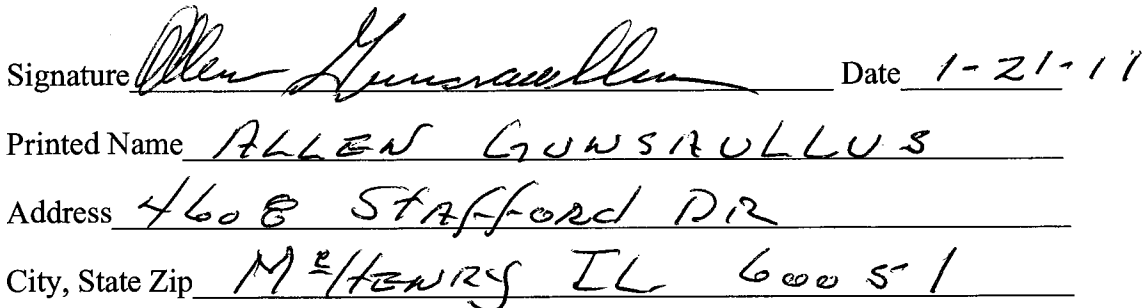 Signature Allen Gunsaullus Date 1-21-11
Printed Name ALLEN GUNSAULLUS
Address 4608 Stafford DR
City, State Zip McHENRY IL 60051